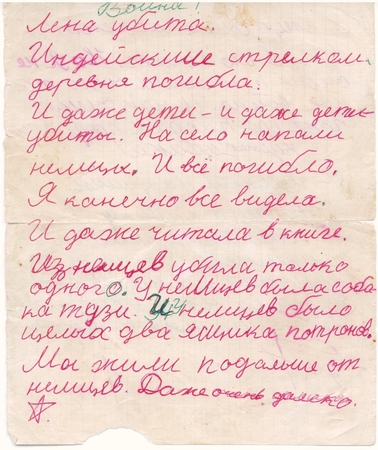 Война!
Лена убита.
Индейскише стрелком
деревня погибла.
И даже дети – и даже дети
убиты. На село напали
немцы. И всё погибло.
Я канечно все видела.
И даже читала в книге.
Из немцев убила только
одного. У немцев была соба-
ка тузи. У немцев было
целых два ящика потронов.
Мы жили подальше от
немцев. Даже очень далеко.